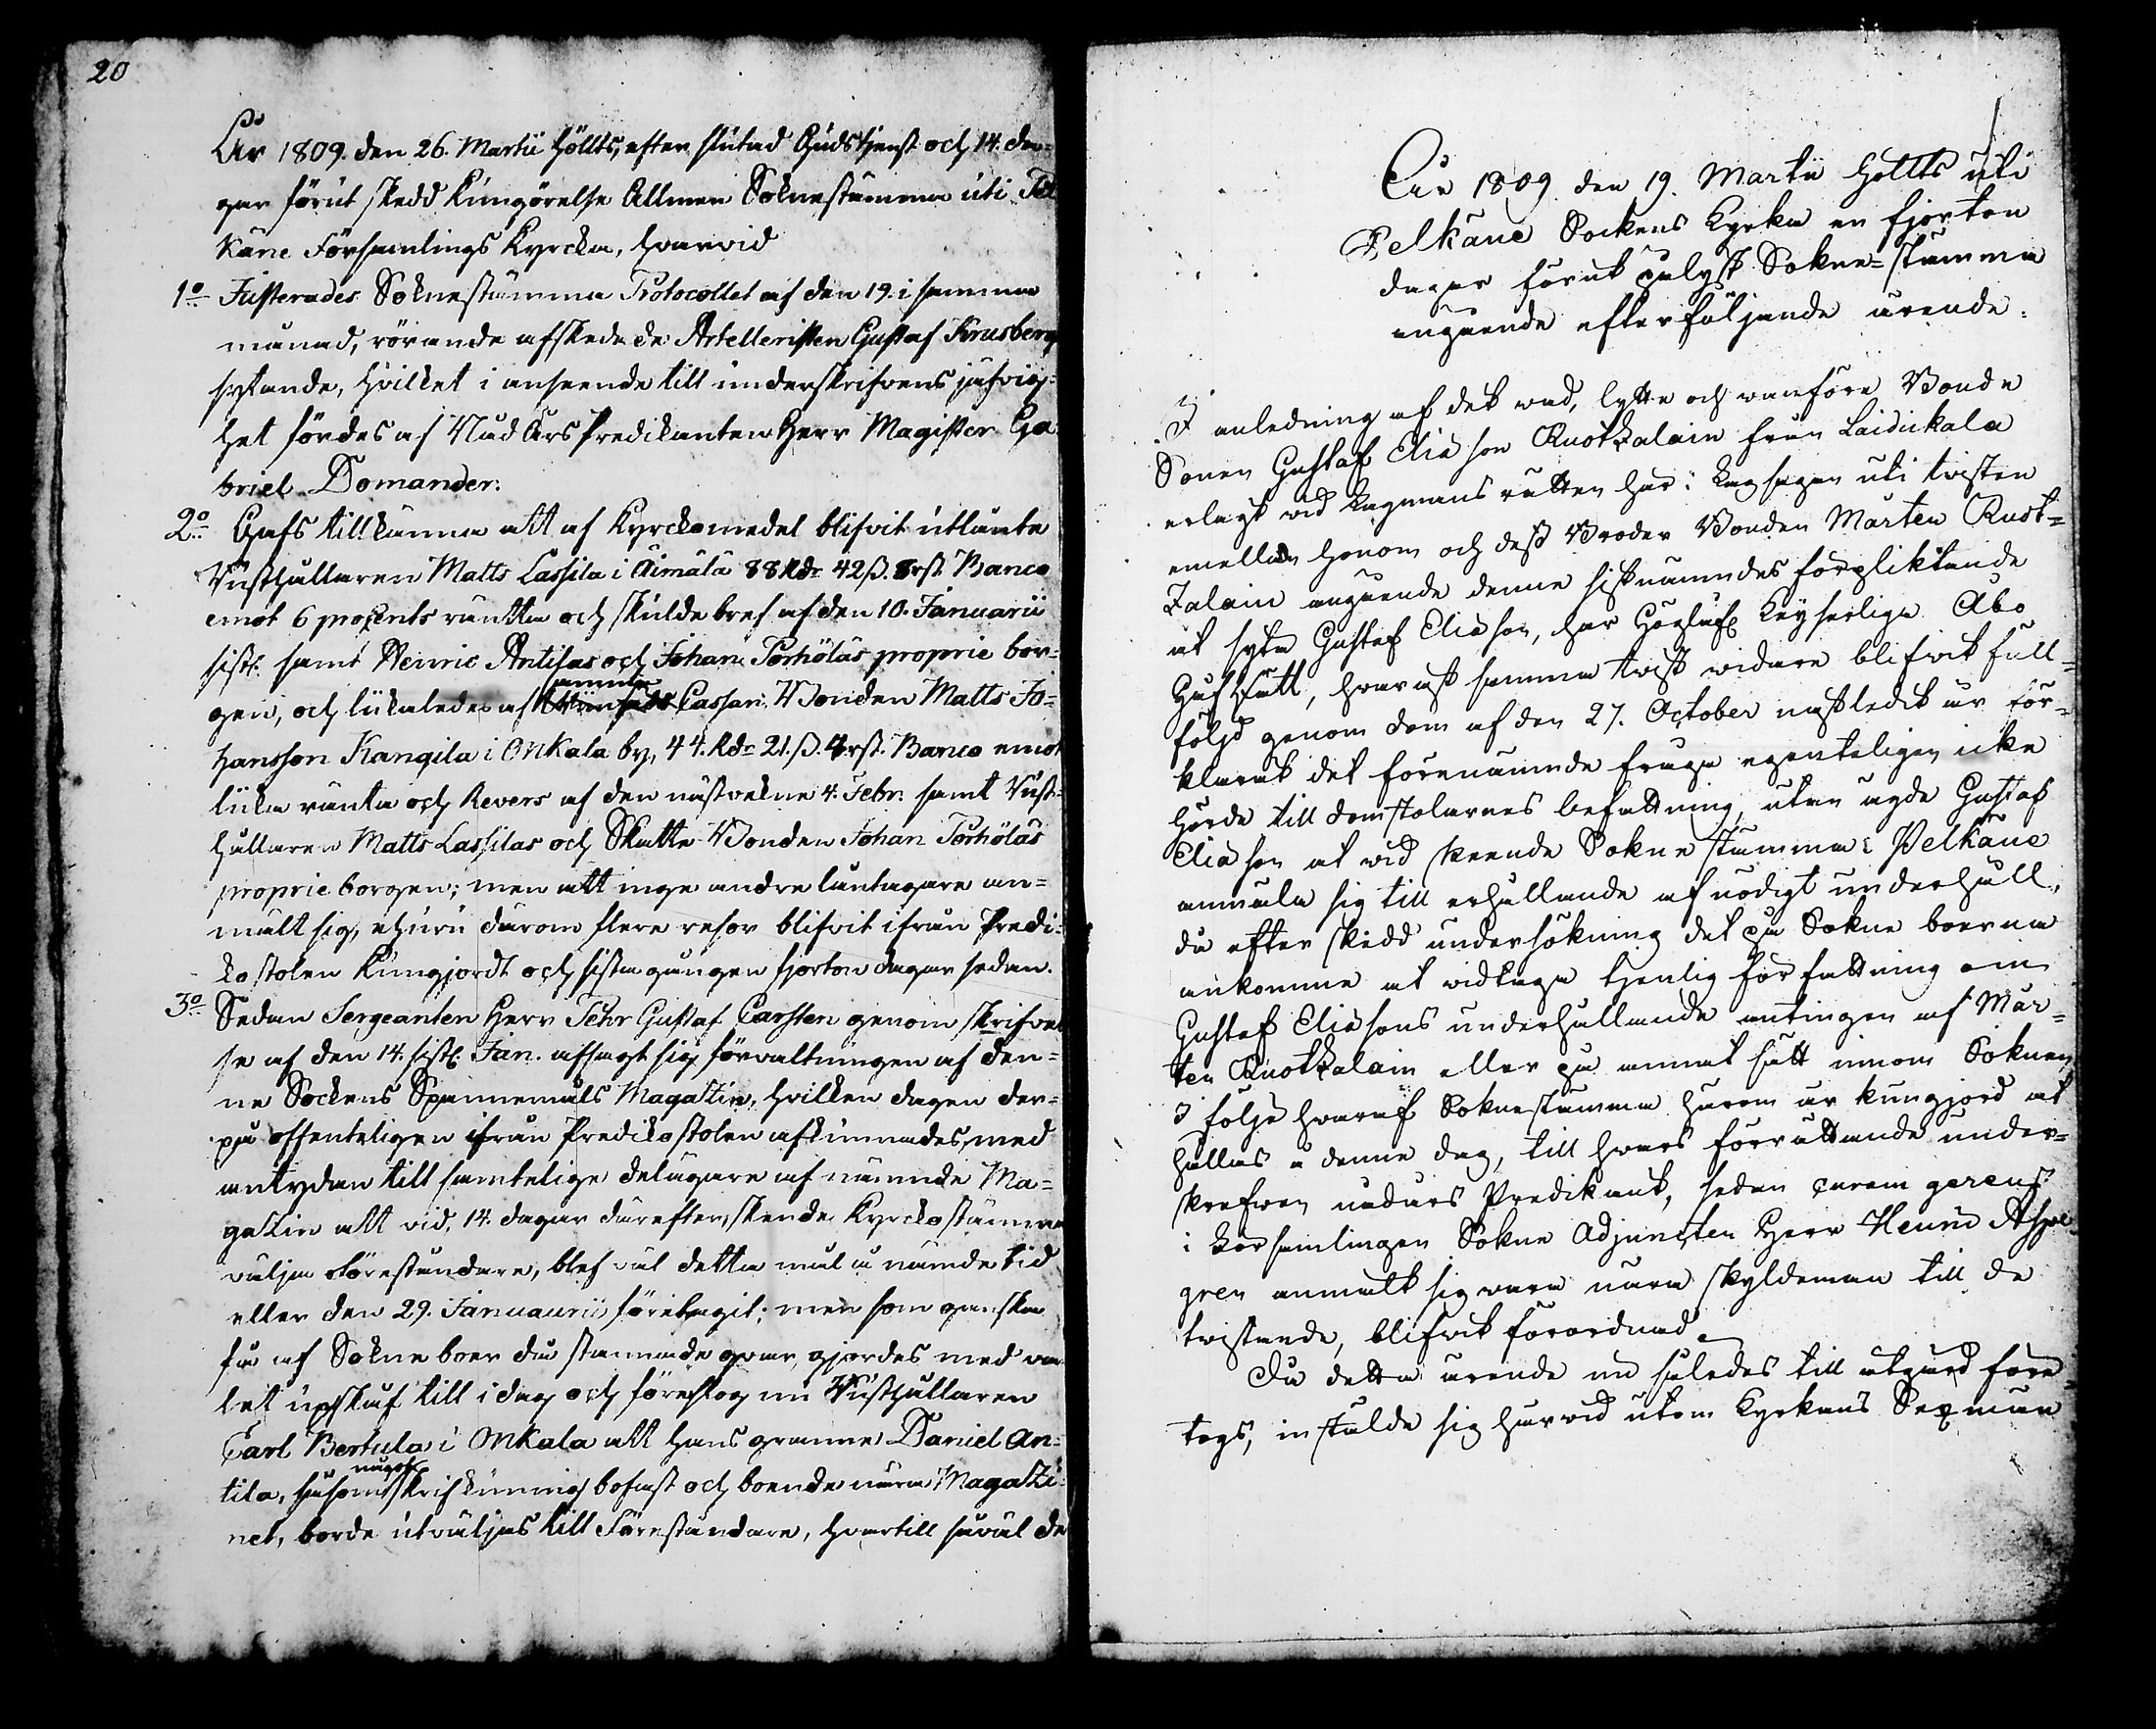 20
År 1809. den 26. Martii höllts, efter slutad Gudstjenst och 14. da-
gar förut skedd kungörelse Allmen Soknestämma uti Pel
käne Församlings Kyrcka, hvarvid
1o Justerades Soknestämma Protocollet af den 19. i samma
månad, rörande afskedade Artelleristen Gustaf Krusberg
sytande, hvilket i anseende till underskrifvens jäfvig-
het fördes af Nåd Års Predikanten Herr Magister Ga
briel Domander.
2o Gafs tillkänna att af Kyrckomedel blifvit utlånte
Rusthållaren Matts Lassila i Äimälä 88 Rdr 42 ß. 8 rst Banco
emot 6 procents räntta och skuldebref af den 10. Januarii
sistl. samt Henric Antilas och Johan Pörhöläs proprie bor-
gen, och likaledes af samma Cassan, Bonden Matts Jo-
hansson Kangila i Onkala by, 44. Rdr 21. ß. 4 rst. Banco emot
lika ränta och Revers af den nästvekne 4. Febr. samt Rust-
hållaren Matts Lassilas och Skatte Bonden Johan Pörhöläs
proprie borgen; men att inge andre låntagare an-
mält sig, ehuru därom flere resor blifvit ifrån Predi-
kostolen kungjordt och sista gången fjorton dagar sedan.
3o Sedan Sergeanten Herr Pehr Gustaf Carsten genom skrifvel
se af den 14. sistl. Jan. afsagt sig förvaltningen af den-
ne Sockens Spannemåls Magatzin, hvilken dagen der-
på offenteligen ifrån Predikostolen afkunnades, med
antydan till samtelige delägare af nämnde Ma-
gatzin att vid, 14. dagar därefter, skende Kyrckostämma
välja Föreståndare, blef väl detta mål å nämde tid
eller den 29. Januaurii företagit; men som ganska
få af Sokneboer då stannade qvar, gjordes med va
let upskuf till i dag och föreslog nu Rusthållaren
Carl Bertula i Onkala att hans granne Daniel An-
tila, såsom något skrifkunnig bofast och boende nära Magatzi-
net, borde utväljas till Föreståndare, hvartill såväl de
År 1809 den 19. Martii hollts uti
Pelkäne Sockens Kyrka en fjorton
dagar förut pålyst Sokne-stämma
angående efterföljande ärende.
I anledning af det wad, lytte och wanföre Bonde
Sonen Gustaf Eliason Ruotzalain från Laidikala
erlagt wid Lagmans rätten har i Lagsagan uti twisten
emellan honom och dess Broder Bonden Mårten Ruot-
zalain angående denne sistnämndes förpliktande
at syta Gustaf Eliason, har Höglofl Keyserliga Åbo
Hof Rätt, hvarest samma twist widare blifvit full-
följd genom dom af den 27. October nästledit år för-
klarat det förenämnde fråga egenteligen icke
hörde till domstolarnes befattning, utan ägde Gustaf
Eliason at wid skeende Sokne stämma i Pelkäne
anmäla sig till erhållande af nödigt underhåll,
då efter skedd undersökning det på Sokne boerna
ankomme at widtaga tjenlig författning om
Gustaf Eliasons underhållande antingen af Mår-
ten Ruotzalain eller på annat sätt innom Soknen,
I följe hwaraf Soknestämma härom är kungjord at
hållas å denne dag, till hvars förrättande under-
skrefwen nådårs Predikant, sedan curam gerens
i Församlingen Sokne Adjuncten Herr Henric Aspe-
gren anmält sig wara nära skyldeman till de
twistande, blifvit förordnad.
Då detta ärende nu således till åtgärd före
togs, inställde sig härwid utom Kyrkans Sexmän